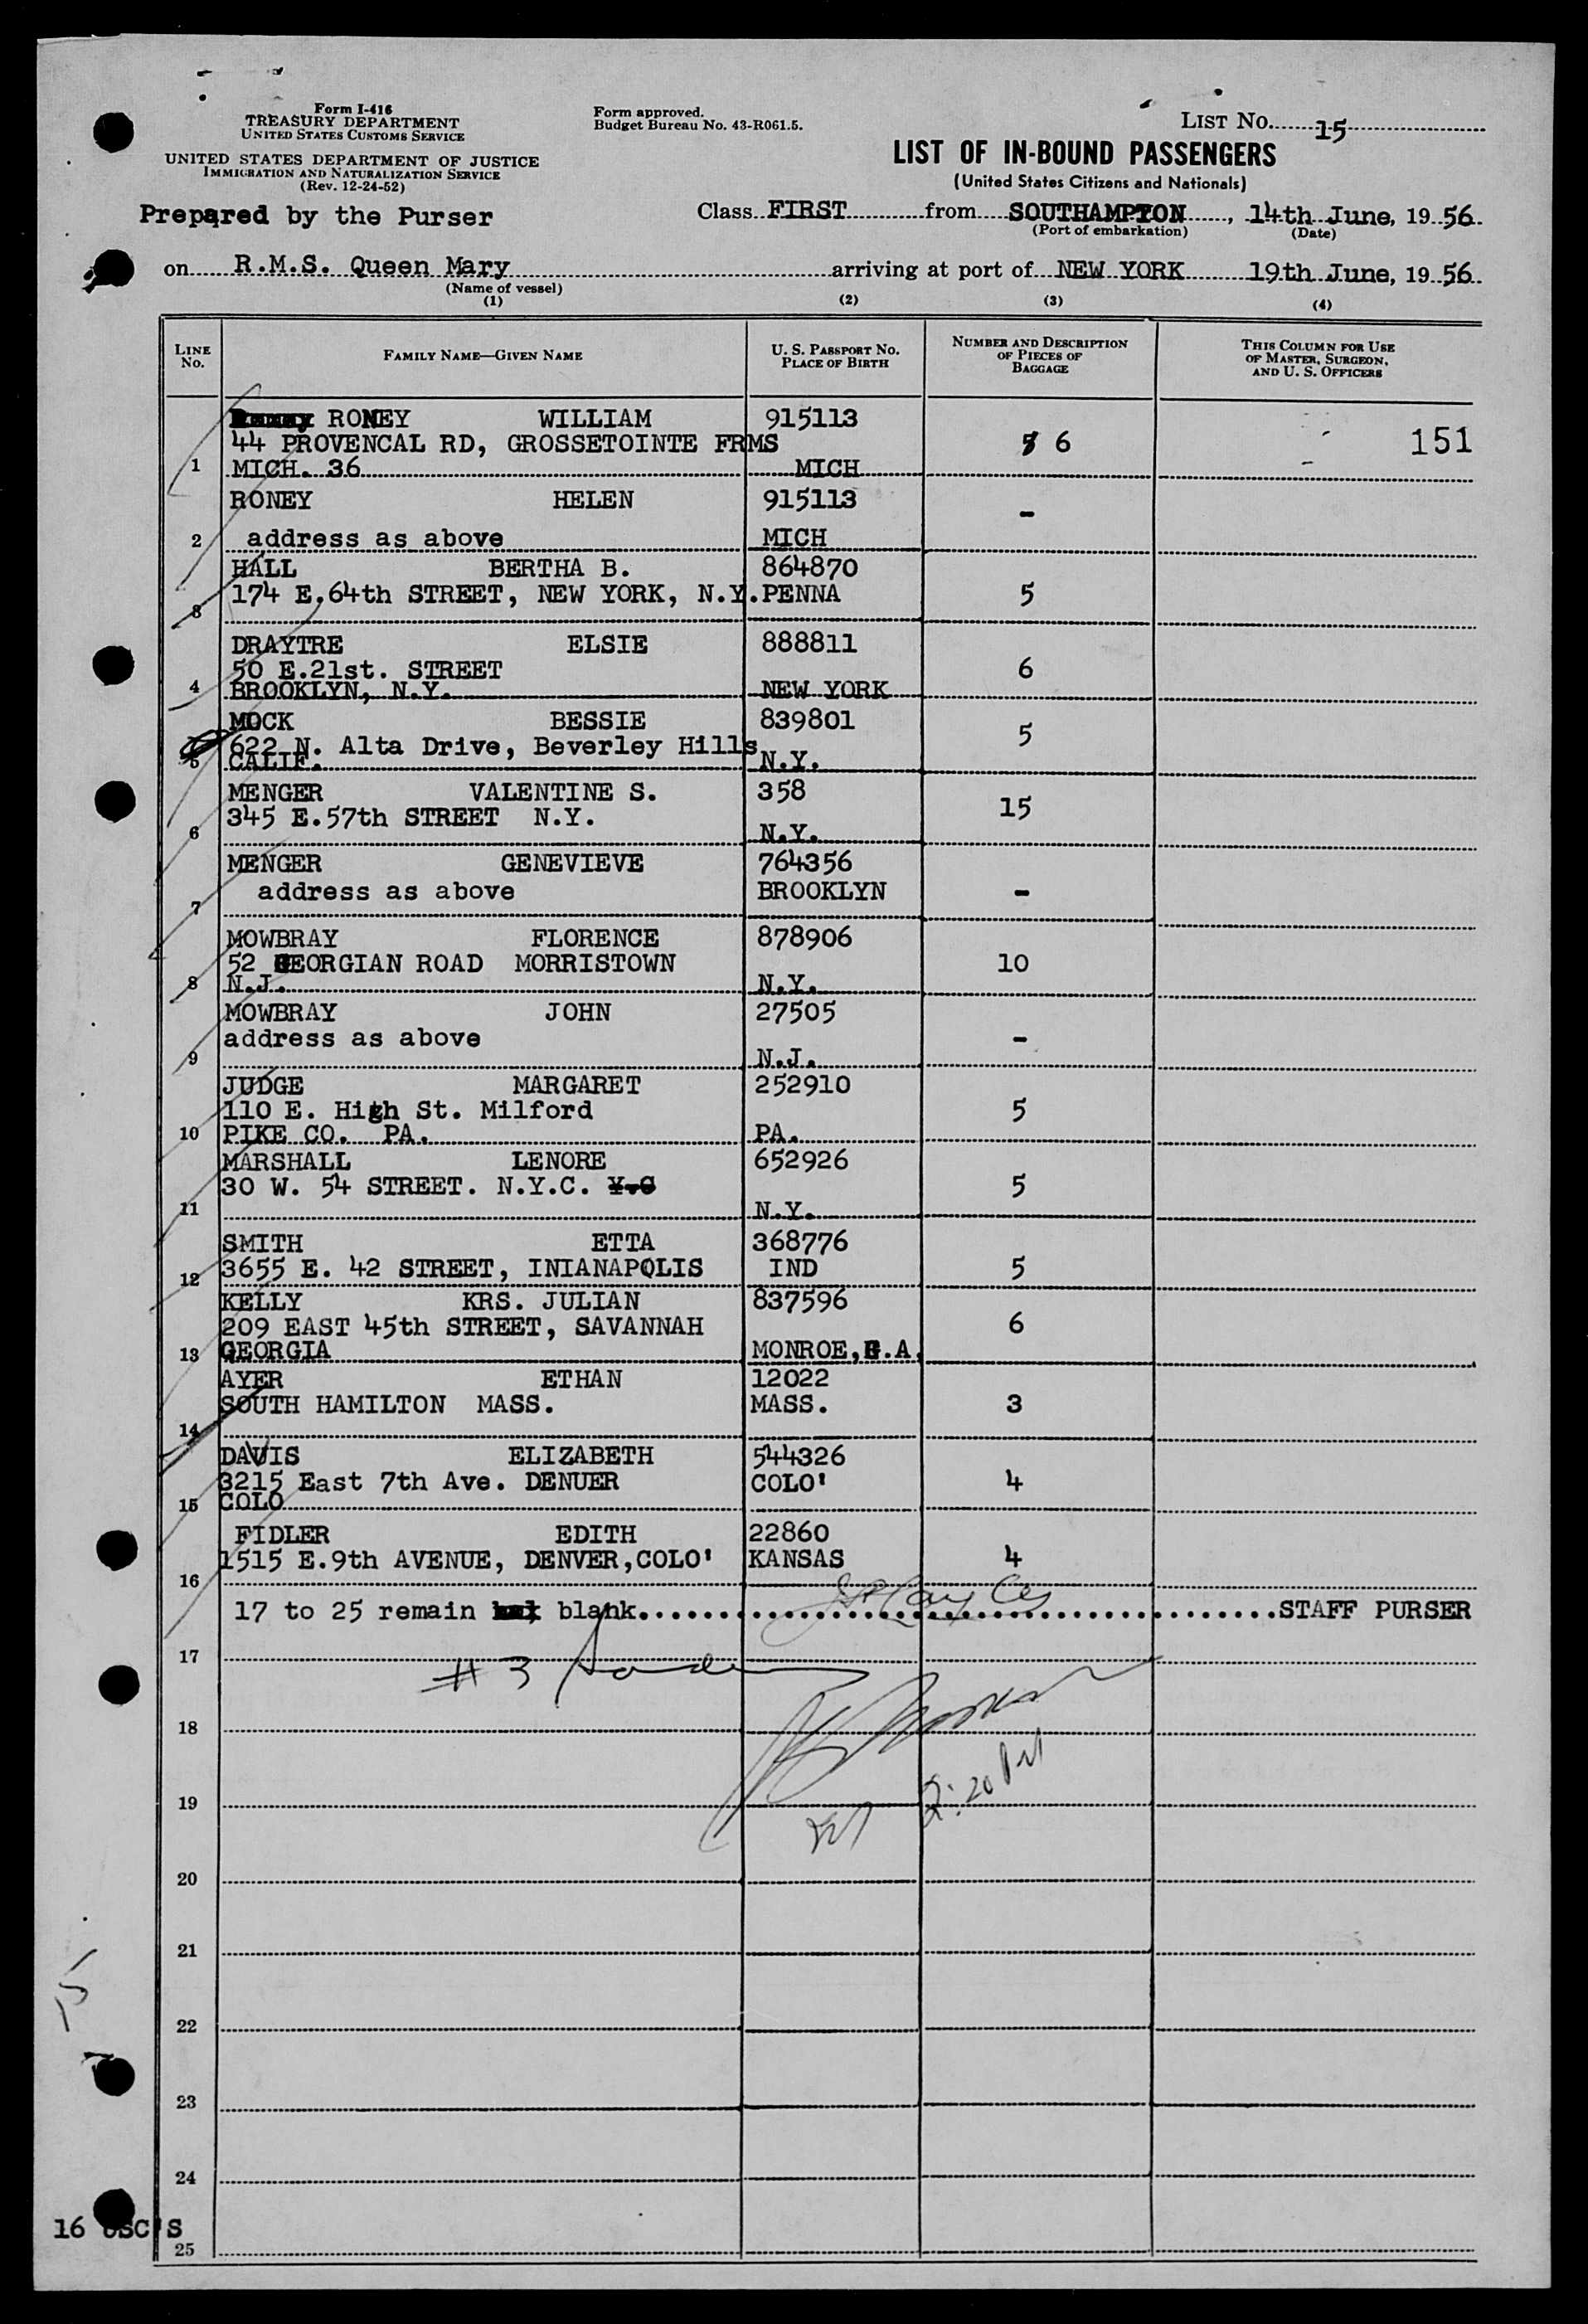 Form I-416
TREASURY DEPARTMENT
UNITED STATES CUSTOMS SERVICE
UNITED STATES DEPARTMENT OF JUSTICE
IMMIGRATION AND NATURALIZATION SERVICE
(Rev. 12-24-52)
Form approved.
Budget Bureau No. 43-R061.5.
LIST NO. 15
LIST OF IN-BOUND PASSENGERS
(United States Citizens and Nationals)
Prepared by the Purser
Class FIRST from SOUTHAMPTON, 14th June, 19 56.
(Port of embarkation) (Date)
on R.M.S. Queen Mary arriving at port of NEW YORK 19th June, 19 56.
(Name of vessel)
(1) (2) (3) (4)
LINE NO. FAMILY NAME—GIVEN NAME U. S. PASSPORT NO. PLACE OF BIRTH NUMBER AND DESCRIPTION OF PIECES OF BAGGAGE THIS COLUMN FOR USE OF MASTER, SURGEON, AND U. S. OFFICERS
RONEY WILLIAM 915113
44 PROVENCAL RD, GROSSETOINTE FRMS 6 151
1 MICH. 36 MICH
RONEY HELEN 915113
-
2 address as above MICH
HALL BERTHA B. 864870
174 E.64th STREET, NEW YORK, N.Y. PENNA 5
3
DRAYTRE ELSIE 888811
50 E.21st. STREET 6
4 BROOKLYN, N.Y. NEW YORK
MOCK BESSIE 839801
622 N. Alta Drive, Beverley Hills 5
5 CALIF. N.Y.
MENGER VALENTINE S. 358
345 E.57th STREET N.Y. 15
6 N.Y.
MENGER GENEVIEVE 764356
address as above BROOKLYN -
7
MOWBRAY FLORENCE 878906
52 GEORGIAN ROAD MORRISTOWN 10
8 N.J. N.Y.
MOWBRAY JOHN 27505
address as above -
9 N.J.
JUDGE MARGARET 252910
110 E. High St. Milford 5
10 PIKE CO. PA. PA.
MARSHALL LENORE 652926
30 W. 54 STREET. N.Y.C. Y.C 5
11 N.Y.
SMITH ETTA 368776
3655 E. 42 STREET, INIANAPOLIS IND 5
12
KELLY KRS. JULIAN 837596
209 EAST 45th STREET, SAVANNAH 6
13 GEORGIA MONROE, G.A.
AYER ETHAN 12022
SOUTH HAMILTON MASS. MASS. 3
14
DAVIS ELIZABETH 544326
3215 East 7th Ave. DENUER COLO' 4
15 COLO
FIDLER EDITH 22860
1515 E.9th AVENUE, DENVER,COLO' KANSAS 4
16
17 to 25 remain blank STAFF PURSER
17
# 3
18
2:20 PM
19
20
21
15
22
23
24
16 USC'S
25